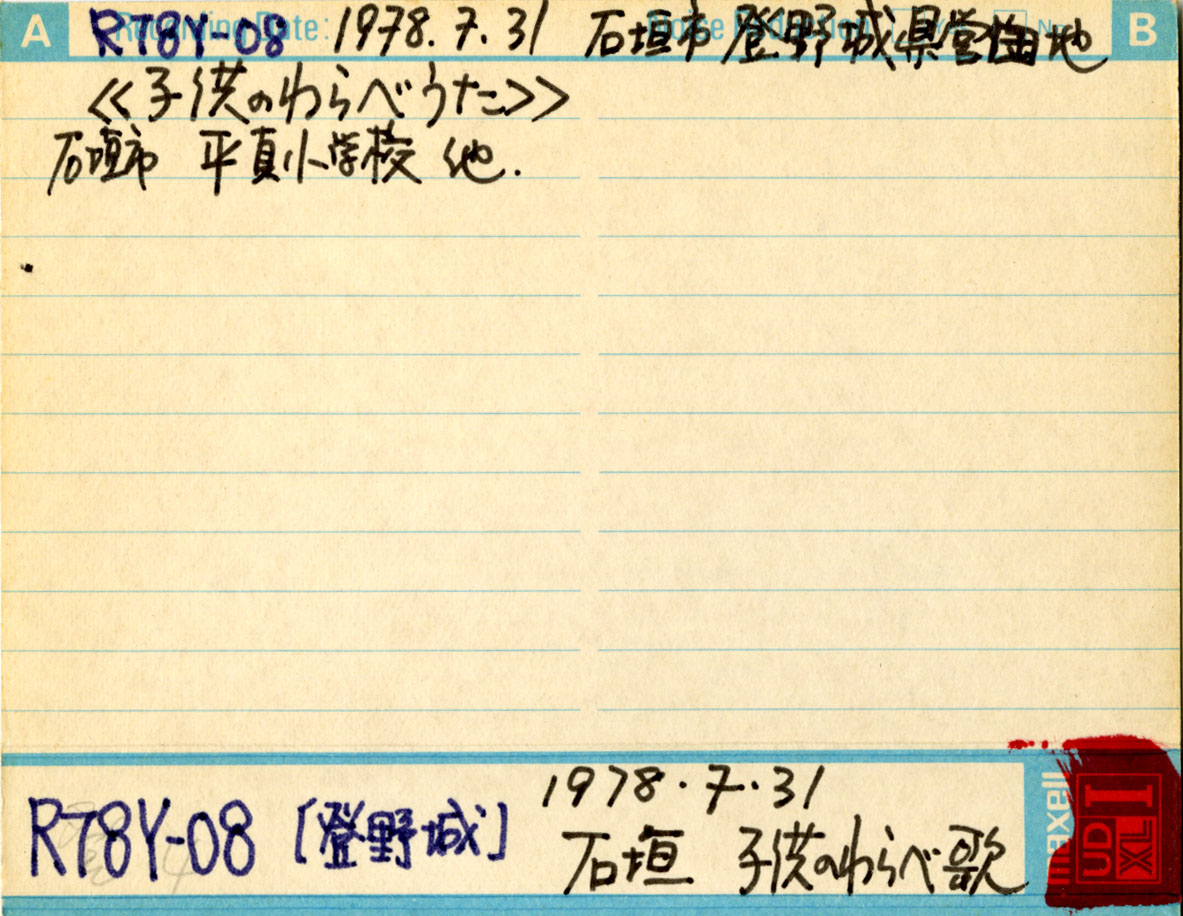 A Recording Date: RT8Y-08 1978.7.31 石垣市登野城県営団地 Noise Reduction No B
≪子供のわらべうた≫
石垣市 平真小学校 他.
RT8Y-08 [登野城] 1978.7.31
石垣 子供のわらべ歌
maxell
UD
XL I